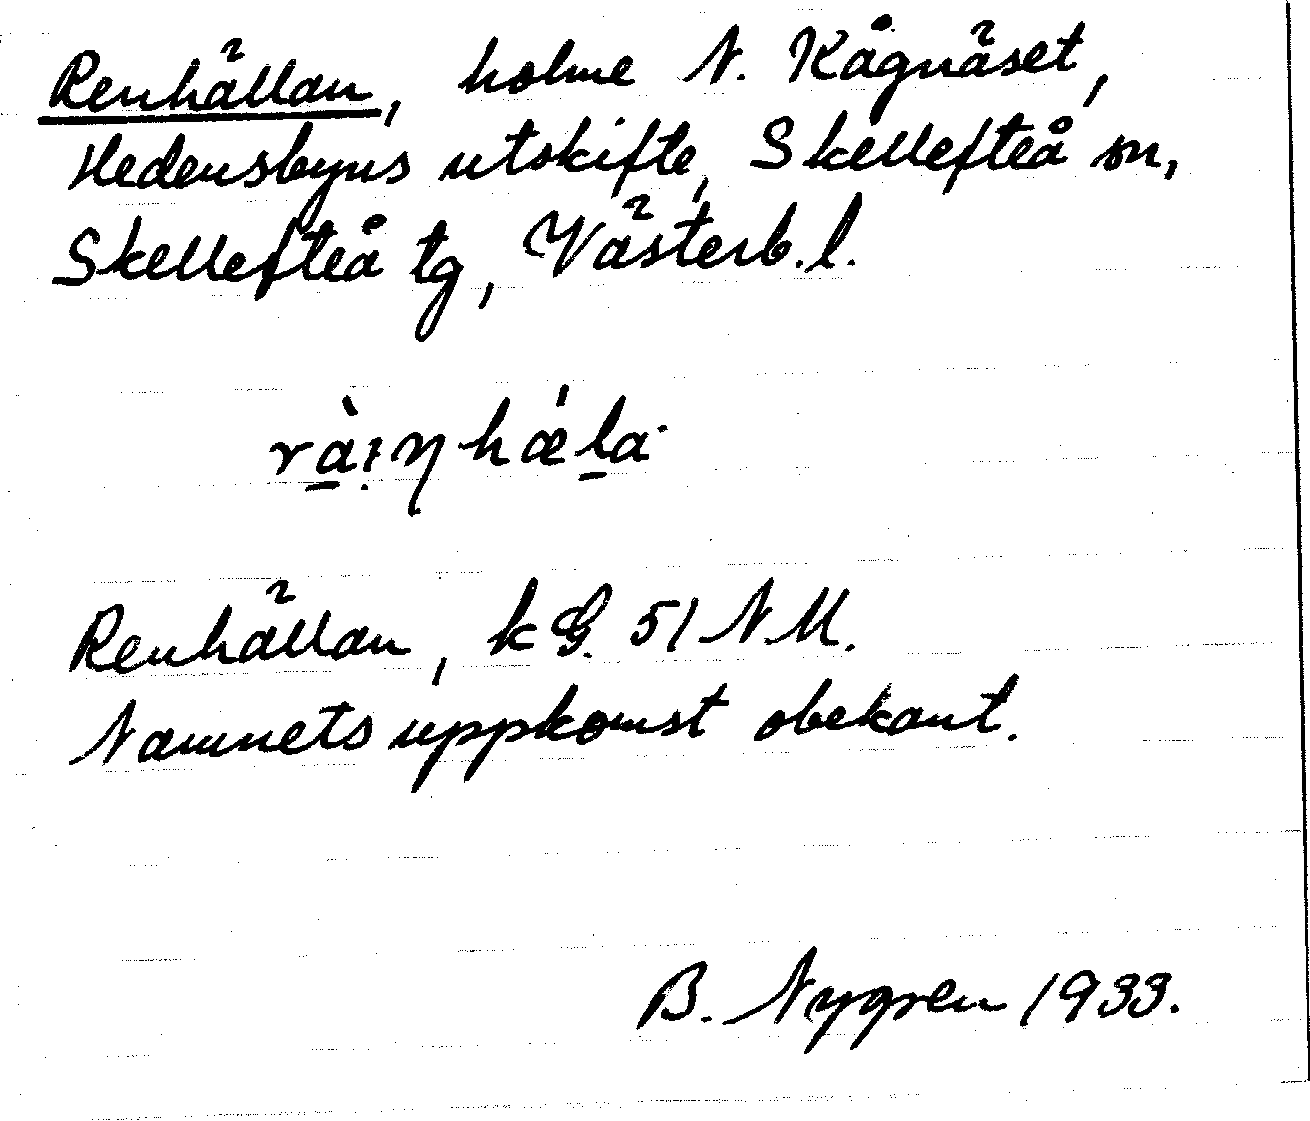 Renhällan, holme N. Kågnäset,
Hedensbyns utskifte, Skellefteå sn,
Skellefteå tg, Västerb. l.
rà̱ịŋhǽḻa·
Renhällan, kG. 51 N.M.
Namnets uppkomst obekant.
B. Nygren 1933.